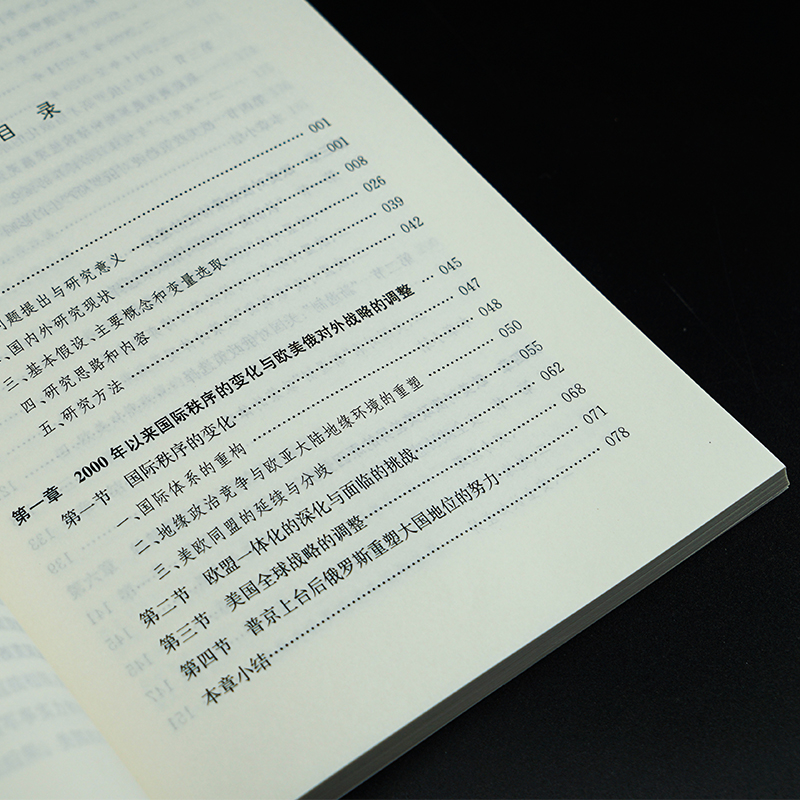 目 录
001
问题提出与研究意义 001
、国内外研究现状 008
三、基本假设、主要概念和变量选取 026
四、研究思路和内容 039
五、研究方法 042
第一章 2000年以来国际秩序的变化与欧美俄对外战略的调整 045
第一节 国际秩序的变化 047
一、国际体系的重构 048
二、地缘政治竞争与欧亚大陆地缘环境的重塑 050
三、美欧同盟的延续与分歧 055
第二节 欧盟一体化的深化与面临的挑战 062
第三节 美国全球战略的调整 068
第四节 普京上台后俄罗斯重塑大国地位的努力 071
本章小结 078